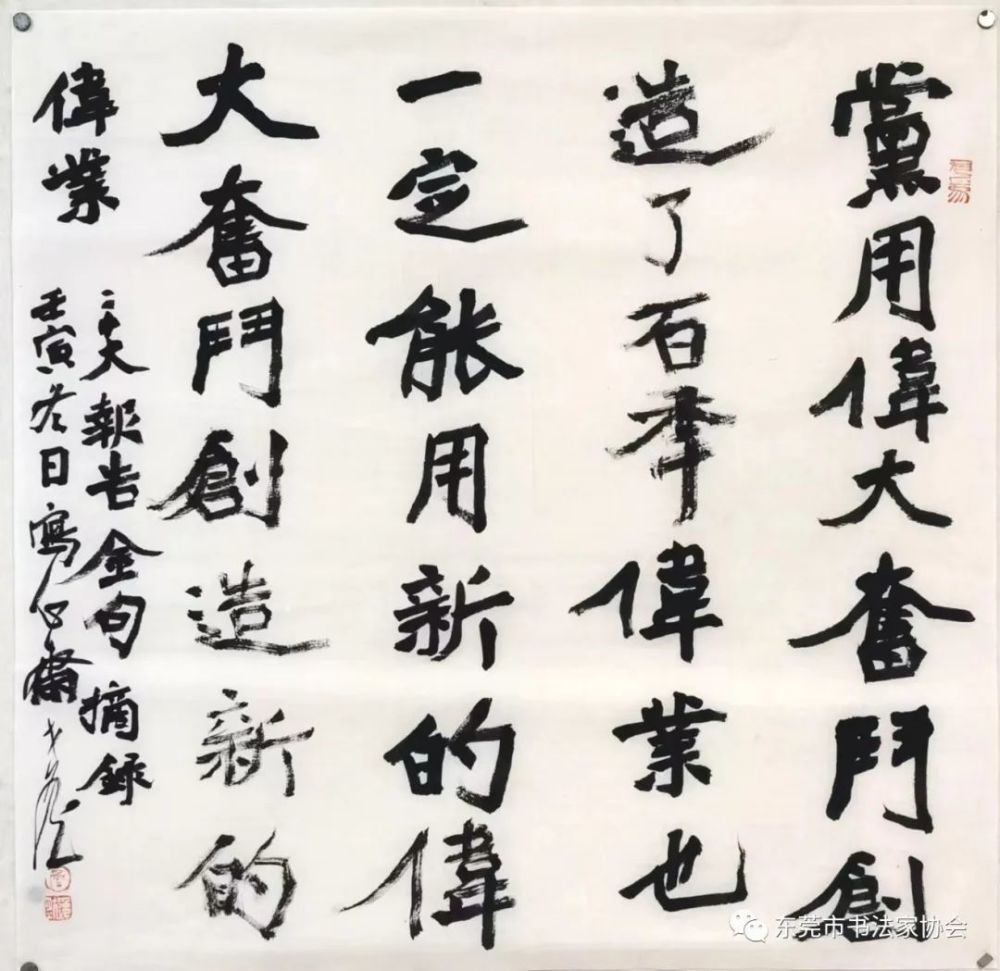 黨用偉大奮鬥創
造了百年偉業也
一定能用新的偉
大奮鬥創造新的
偉業
二十大報告金句摘録
壬寅冬日寫心齋
东莞市书法家协会